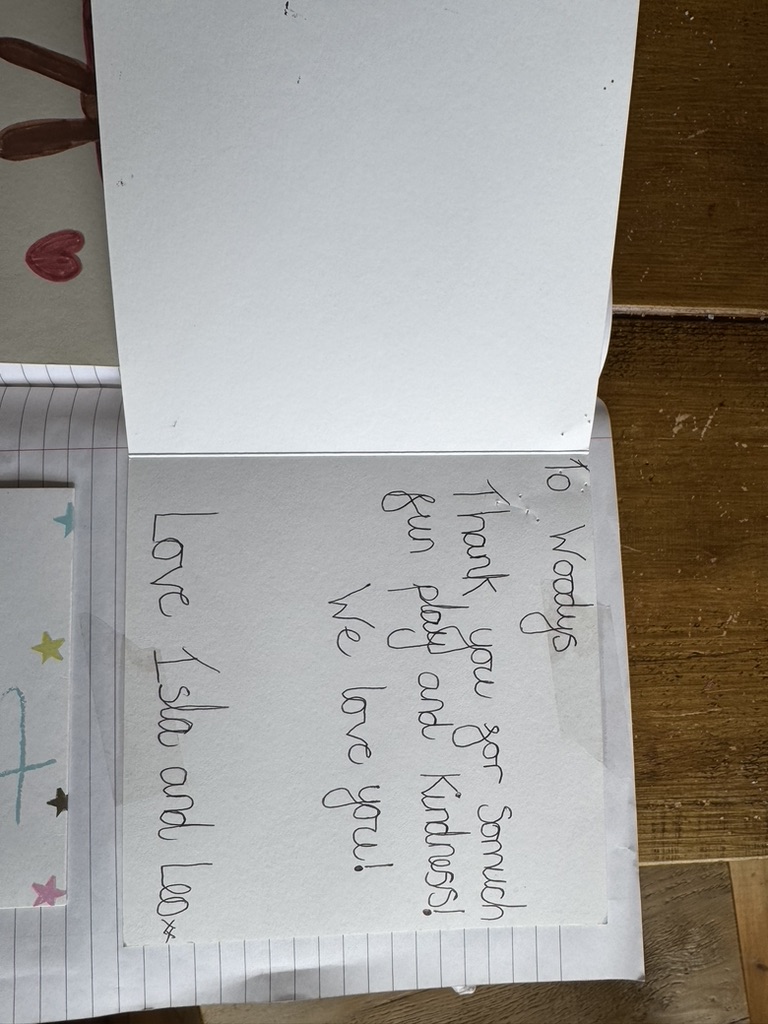 To Woodys
Thank you for somuch
fun play and Kindness!
We love you!
Love Isla and Leo xx